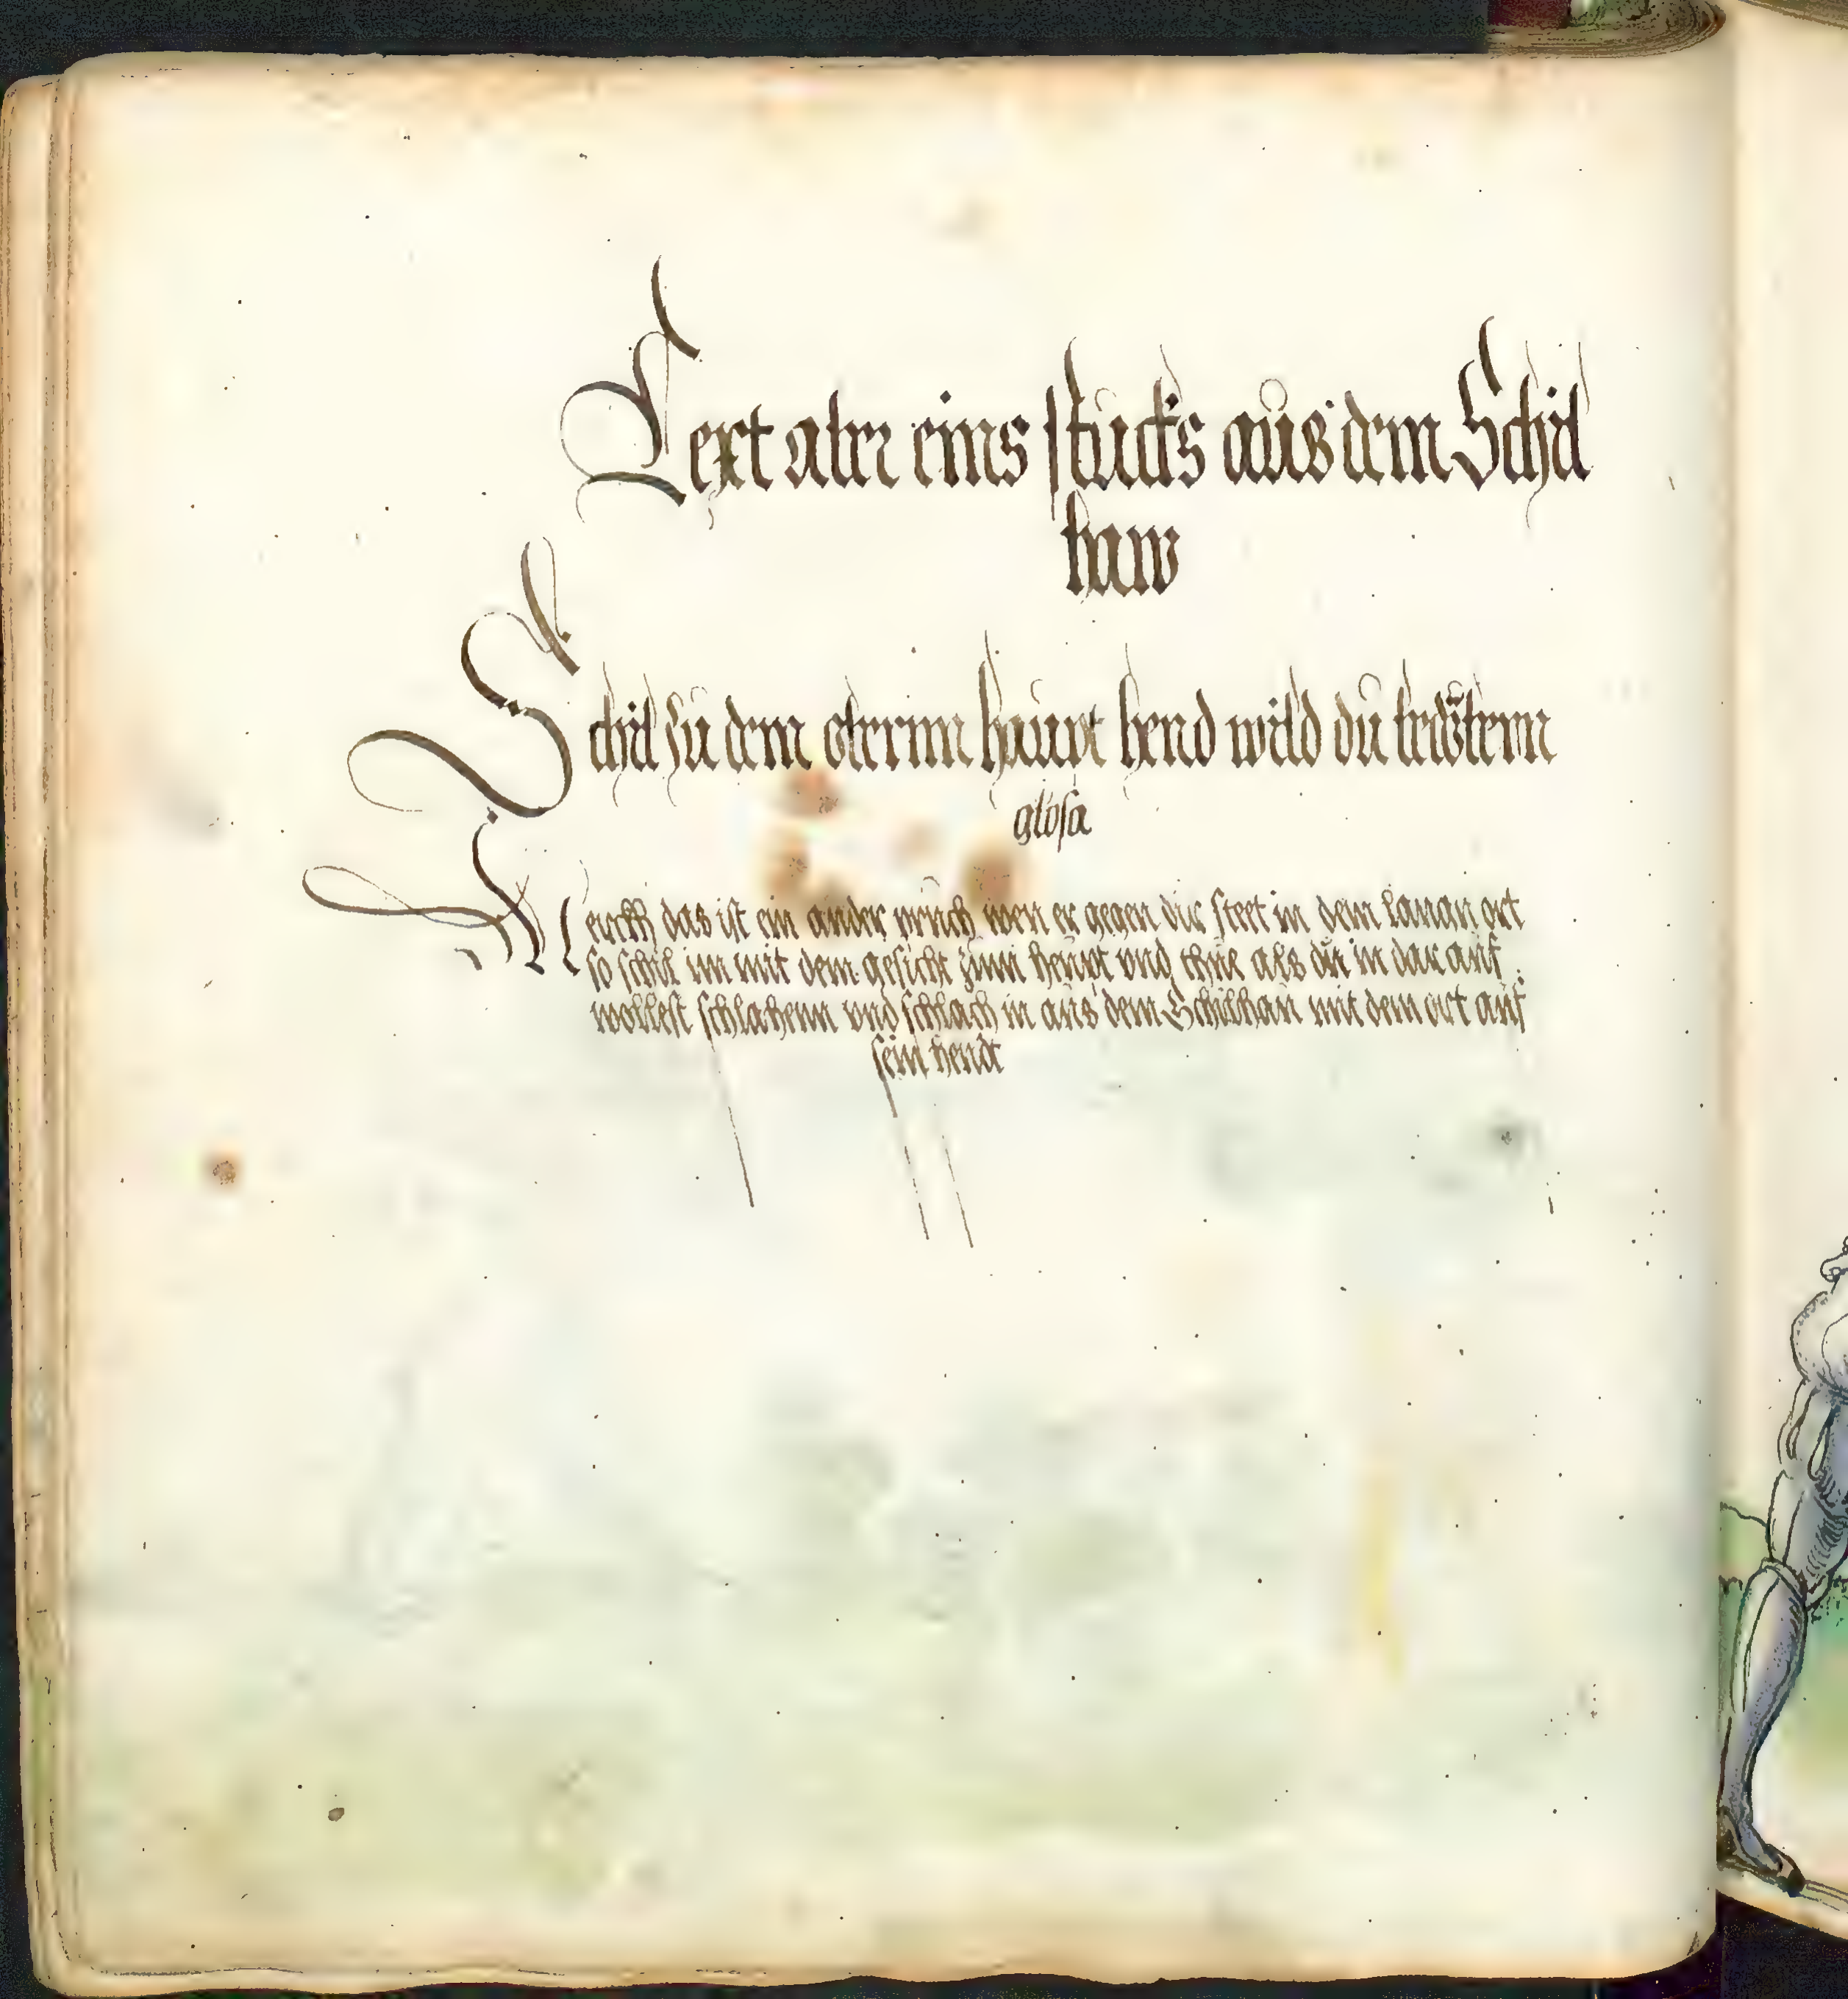 Text aber eins stucks aus dem Schil
haw
Schil zu dem oberenn haupt hend wild du bedöbenn
glosa
Merckh das ist ein ander pruch wen er gegen dir steet in dem langn ort
so schil im mit dem gesicht zum heupt vnd thue als du in dar auf
wollest schlahenn vnd schlach in aus dem Schilhau mit dem ort auf
sein hendt